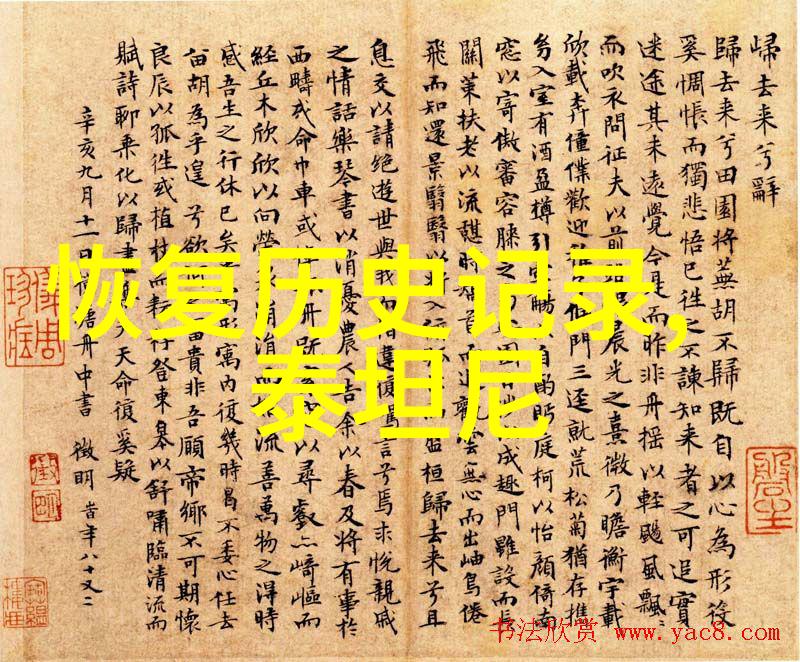 歸去来兮辭
歸去来兮田園将蕪胡不歸既自以心為形役
奚惆悵而獨悲悟已往之不諫知来者之可追實
迷途其未遠覺今是而昨非舟摇以輕颺風飄〻
而吹衣問征夫以前晨光之熹微乃瞻衡宇載
欣載奔僮僕歡迎門三逕就荒松菊猶存攜
幼入室有酒盈樽引觴以自酌眄庭柯以怡顏倚南
窓以寄傲審容膝之成趣門雖設而長
關策扶老以流憩時首而雲無心而出岫鳥倦
飛而知還景翳翳以入桓歸去来兮且
息交以請絶遊世與我違復駕言兮焉求悦親戚
之情話樂琴書以消憂農人告余以春及将有事於
西疇或命巾車或舟既以尋壑亦崎嶇而
經丘木欣欣以向榮涓流善萬物之得時
感吾生之行休已矣形寓内復幾時曷不委心任去
留胡為乎遑兮欲富貴非吾願帝鄉不可期懷
良辰以孤往或植杖而耘登東皋以舒嘯臨清流而
賦詩聊乘化以歸天命復奚疑
辛亥九月十一日舟中書 徵明 年八十又二
恢复历史记录,
泰坦尼
书法欣赏 www.yac8.com